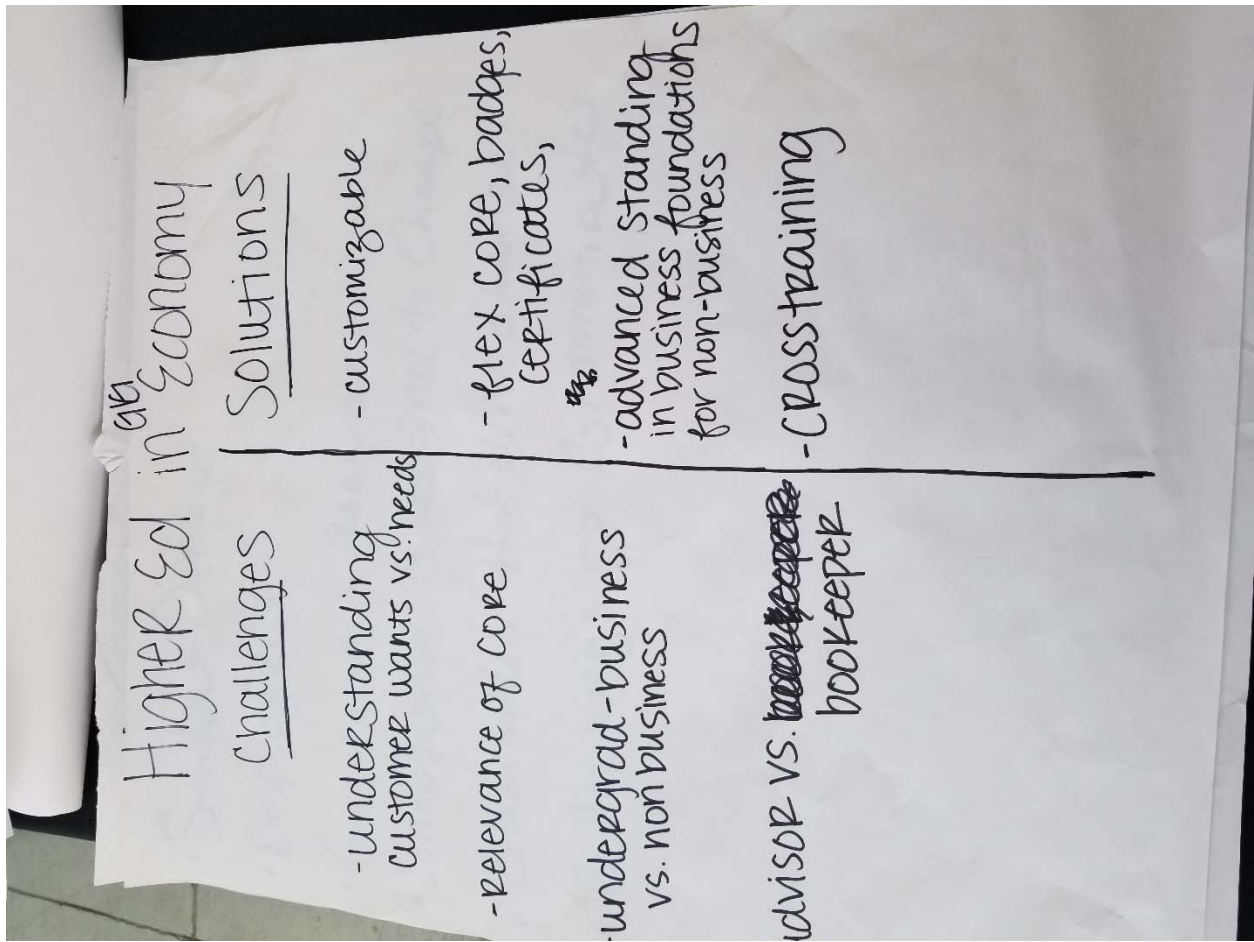 Higher Ed in gig Economy
Challenges
-understanding
customer wants vs. needs
-Relevance of core
-undergrad-business
vs. nonbusiness
advisor vs.
bookeeper
Solutions
-customizable
-flex core, badges,
certificates,
-advanced standing
in business foundations
for non-business
-Crosstraining